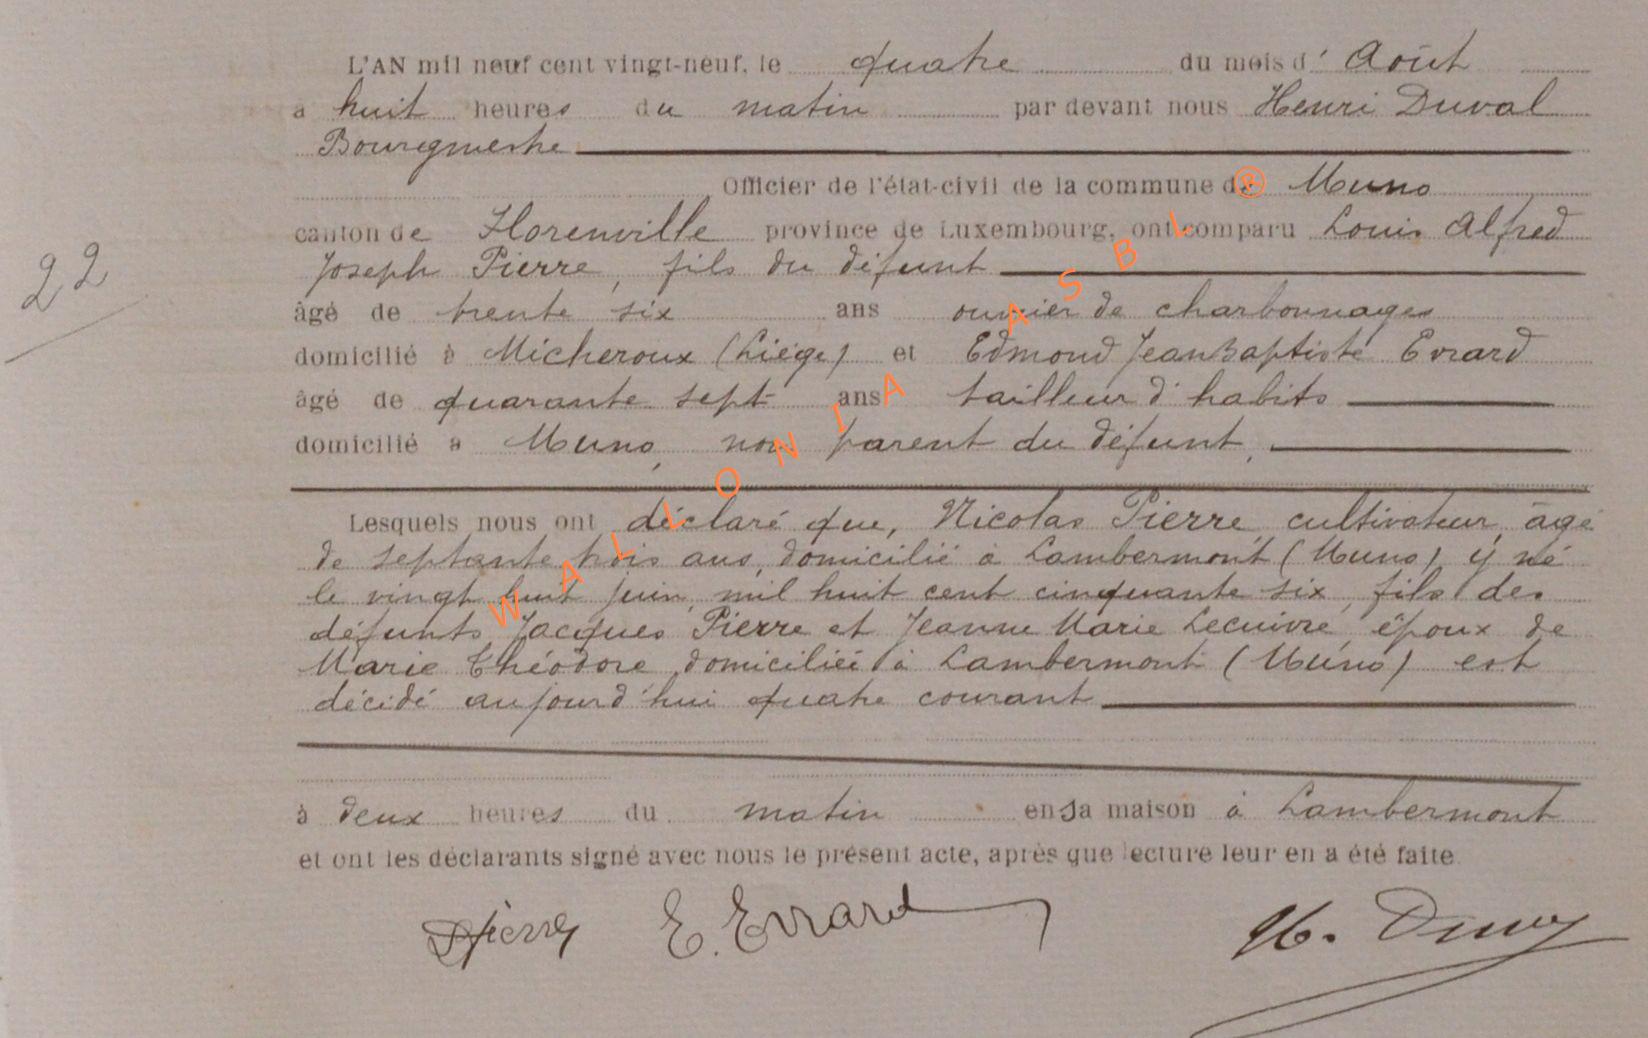 L'AN mil neuf cent vingt-neuf, le quatre du mois d' Août
à huit heures du matin par devant nous Henri Duval
Bourgmestre
Officier de l'état-civil de la commune de Muno
canton de Florenville province de Luxembourg, ont comparu Louis Alfred
Joseph Pierre, fils du défunt
22
âgé de trente six ans ouvrier de charbonnages
domicilié à Micheroux (Liége) et Edmond Jean Baptiste Evrard
âgé de quarante sept ans tailleur d'habits
domicilié à Muno, non parent du défunt,
Lesquels nous ont déclaré que, Nicolas Pierre cultivateur, âgé
de septante trois ans, domicilié à Lambermont (Muno), y né
le vingt huit juin, mil huit cent cinquante six, fils des
défunts Jacques Pierre et Jeanne Marie Lecuivre, époux de
Marie Théodore domiciliée à Lambermont (Muno) est
décédé aujourd'hui quatre courant
à deux heures du matin en sa maison à Lambermont
et ont les déclarants signé avec nous le présent acte, après que lecture leur en a été faite.
Pierre E. Evrard H. Duval
WALLONIA ASBL ®